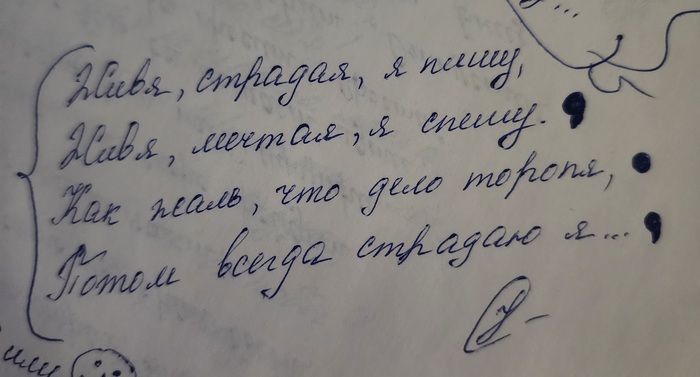 Живя, страдая, я пишу,
Живя, мечтая, я спешу.
Как жаль, что дело торопя,
Потом всегда страдаю я...
У-
или